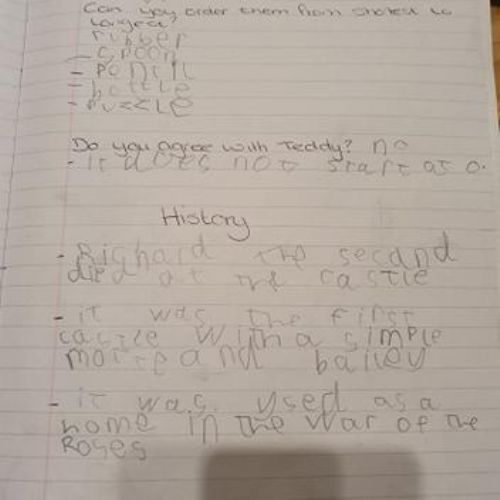 Can you order them from shortest to
largest?
rubber
- spoon
- pencil
- bottle
- puzzle
Do you agree with Teddy? no
- it does not start at 0.
History
- Richard the second
died at the castle
- it was the first
castle with a simple
motte and bailey
- it was used as a
home in the war of the
Roses